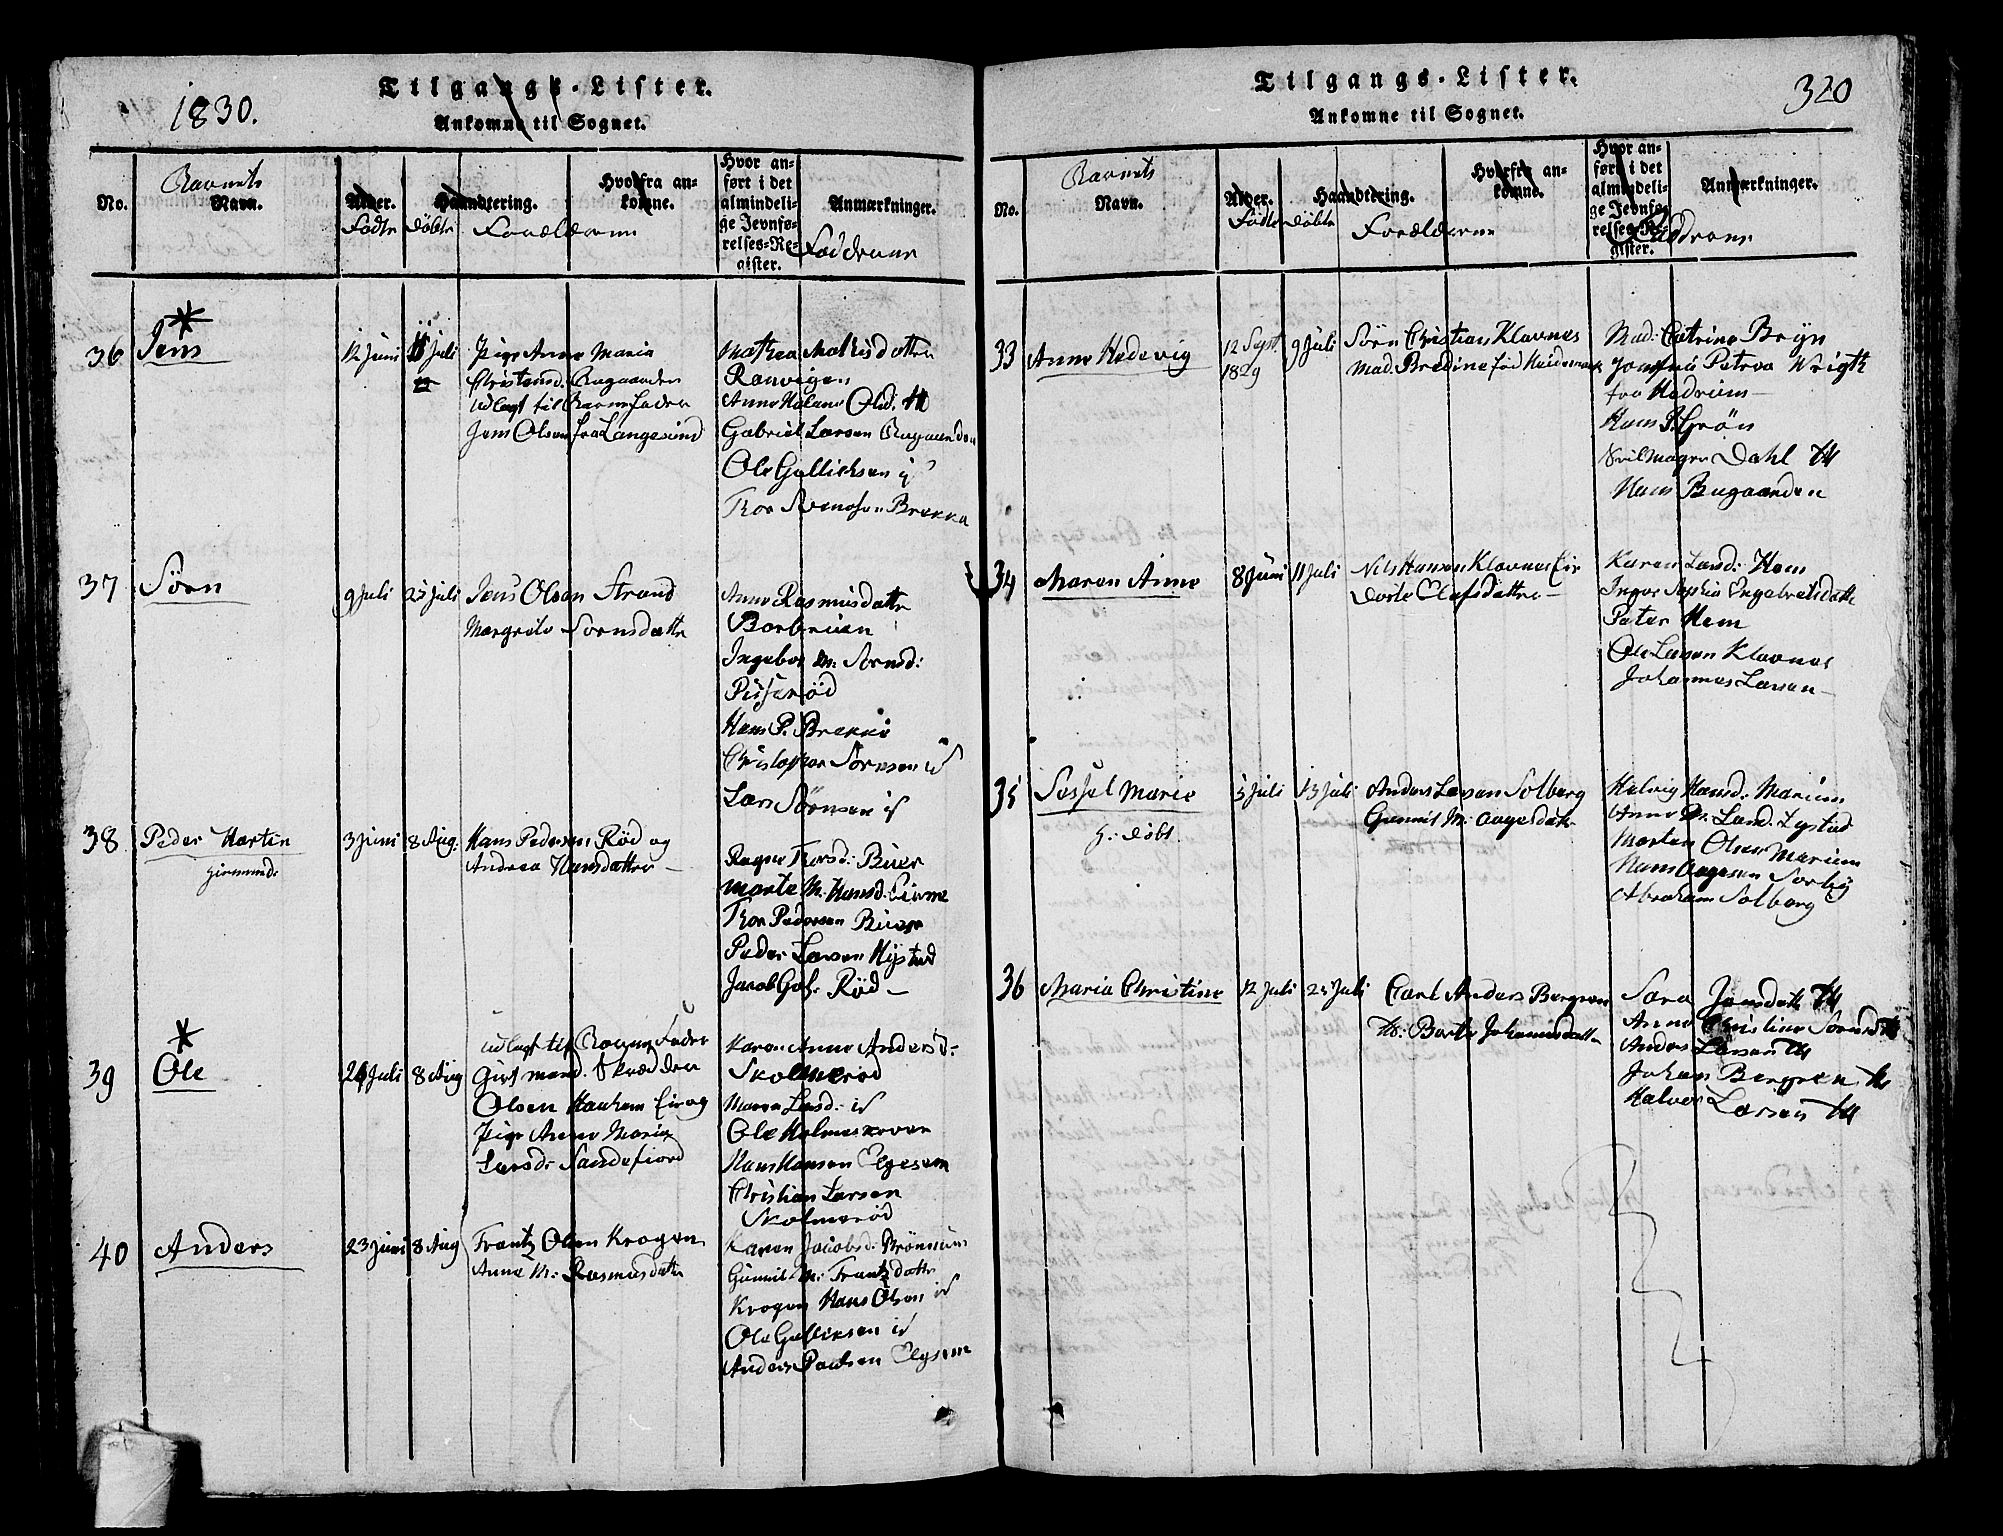 1830.
Tilgangs-Lister.
Ankomne til Sognet.
No.
Barnets
Navn.
Alder.
Födte
Döbte
Haandtering.
Forældrene
Hvorfra an-
komne.
Hvor an-
ført i det
almindeli-
ge Jevnfø-
relses-Re-
gister.
Anmærkninger.
Fadderne
36
Jens
12 Juni
Juli
Pige Anne Maria
Christensd. Bugaarden
udlagt til Barnefader
Jens Olsen fra Langesund
Mathea Mathisdatter
Ranvigen
Anne Helene Olsd. th
Gabriel Larsen Bugaarden
Ole Gullichsen
Thor Svendsen Brekka
37
Sörn
9 Juli
25 Juli
Jens Olsen Strand
Margrete Sörnsdatte
Anne Rasmusdatte
Ingebor M. Sörnsd:
Pisserød
Hans P. Brekke
Christopher Sörensen id
Lars Sörnsen id
38
Peder Martin
hiemmed.
3 Juni
8 Aug.
Hans Pedersen Röd og
Andrea Hansdatter
Ragne Thorsd: Buer
Marte M. Hansd.
Thor Pedersen Buer
Peder Larsen Hystad
Jacob Röd
39
Ole
Juli
8 Aug
udlagt til Barnefader
Gift mand. Skrædder
Olsen Haukem Eie og
Pige Anne Maria
Larsd: Sandefiord
Karen Anne Andersd:
Skolmerød
Maren Larsd: id
Ole
Hans Hansen Elgesem
Christian Larsen
Skolmerød
40
Anders
23 Juni
8 Aug
Frantz Olsen Krogen
Anne M: Rasmusdatte
Karen Jacobsd:
Gunnil M: Frantzdatte
Krogen Hans Olsen id
Ole Gullicksen id
Anders Paulsen Elgsem
Tilgangs-Lister.
320
Ankomne til Sognet.
No.
Barnets
Navn.
Alder.
Födte
Döbte
Haandtering.
Forældrene
Hvorfra an-
komne.
Hvor an-
ført i det
almindeli-
ge Jevnfø-
relses-Re-
gister.
Anmærkninger.
Fadderne
33
Anne Hedevig
12 Sept.
1829
9 Juli
Sörn Christian Klavnes
Mad. Bredine föd Heidemark
Mad: Catrine Bryn
Petrea Wrigth
fra Hedrum
Hans P. Grön
Dahl th
Hans Bugaarden
34
Maren Anne
8 Juni
11 Juli
Nils Hansen Klavnes Eie
Dorte Olafsdatter
Karen Larsd: Hem
Inger Sophia Engebretsdatte
Peter Hem
Ole Larsen Klavnes
Johannes Larsen
35
Sessel Marie
h: döbt
5 Juli
13 Juli
Anders Larsen Solberg
Gunnil M: Aagesdatte
Helvig Hansd. Marium
Anne M. Larsd. Lystad
Morten Olsen Marium
Hans Aagesen Sörby
Abraham Solberg
36
Maria Christine
12 Juli
25 Juli
Carl Anders Bergren
th: Berte Johannesdatte
Sara Jensdatte th
Anne Christine Sörnsd th
Anders Larsen th
Johan Bergren th
Halvor Larsen th